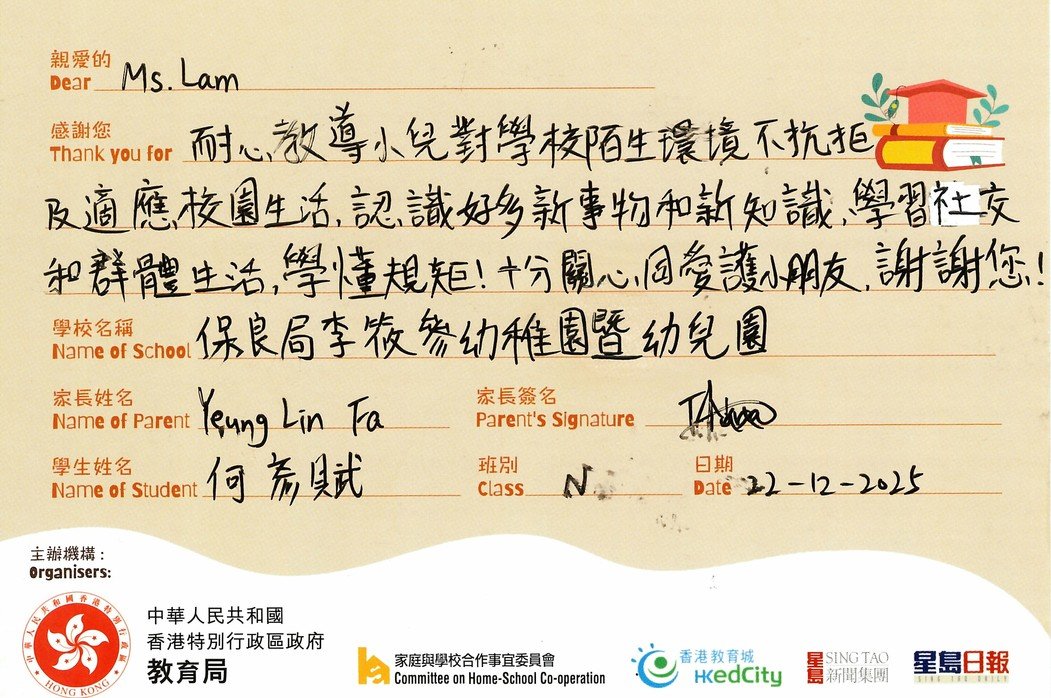 親愛的
Dear Ms. Lam
感謝您
Thank you for 耐心教導小兒對學校陌生環境不抗拒
及適應校園生活,認識好多新事物和新知識,學習社交
和群體生活,學懂規矩!十分關心同愛護小朋友,謝謝您!
學校名稱
Name of School 保良局李筱參幼稚園暨幼兒園
家長姓名 家長簽名
Name of Parent Yeung Lin Fa Parent's Signature
學生姓名 班別 日期
Name of Student 何彥賦 Class N Date 22-12-2025
主辦機構:
Organisers:
中華人民共和國香港特別行政區
HONG KONG
中華人民共和國
香港特別行政區政府
教育局
家庭與學校合作事宜委員會
Committee on Home-School Co-operation
香港教育城
HKedCity
星島 SING TAO
新聞集團
星島日報
SING TAO DAILY